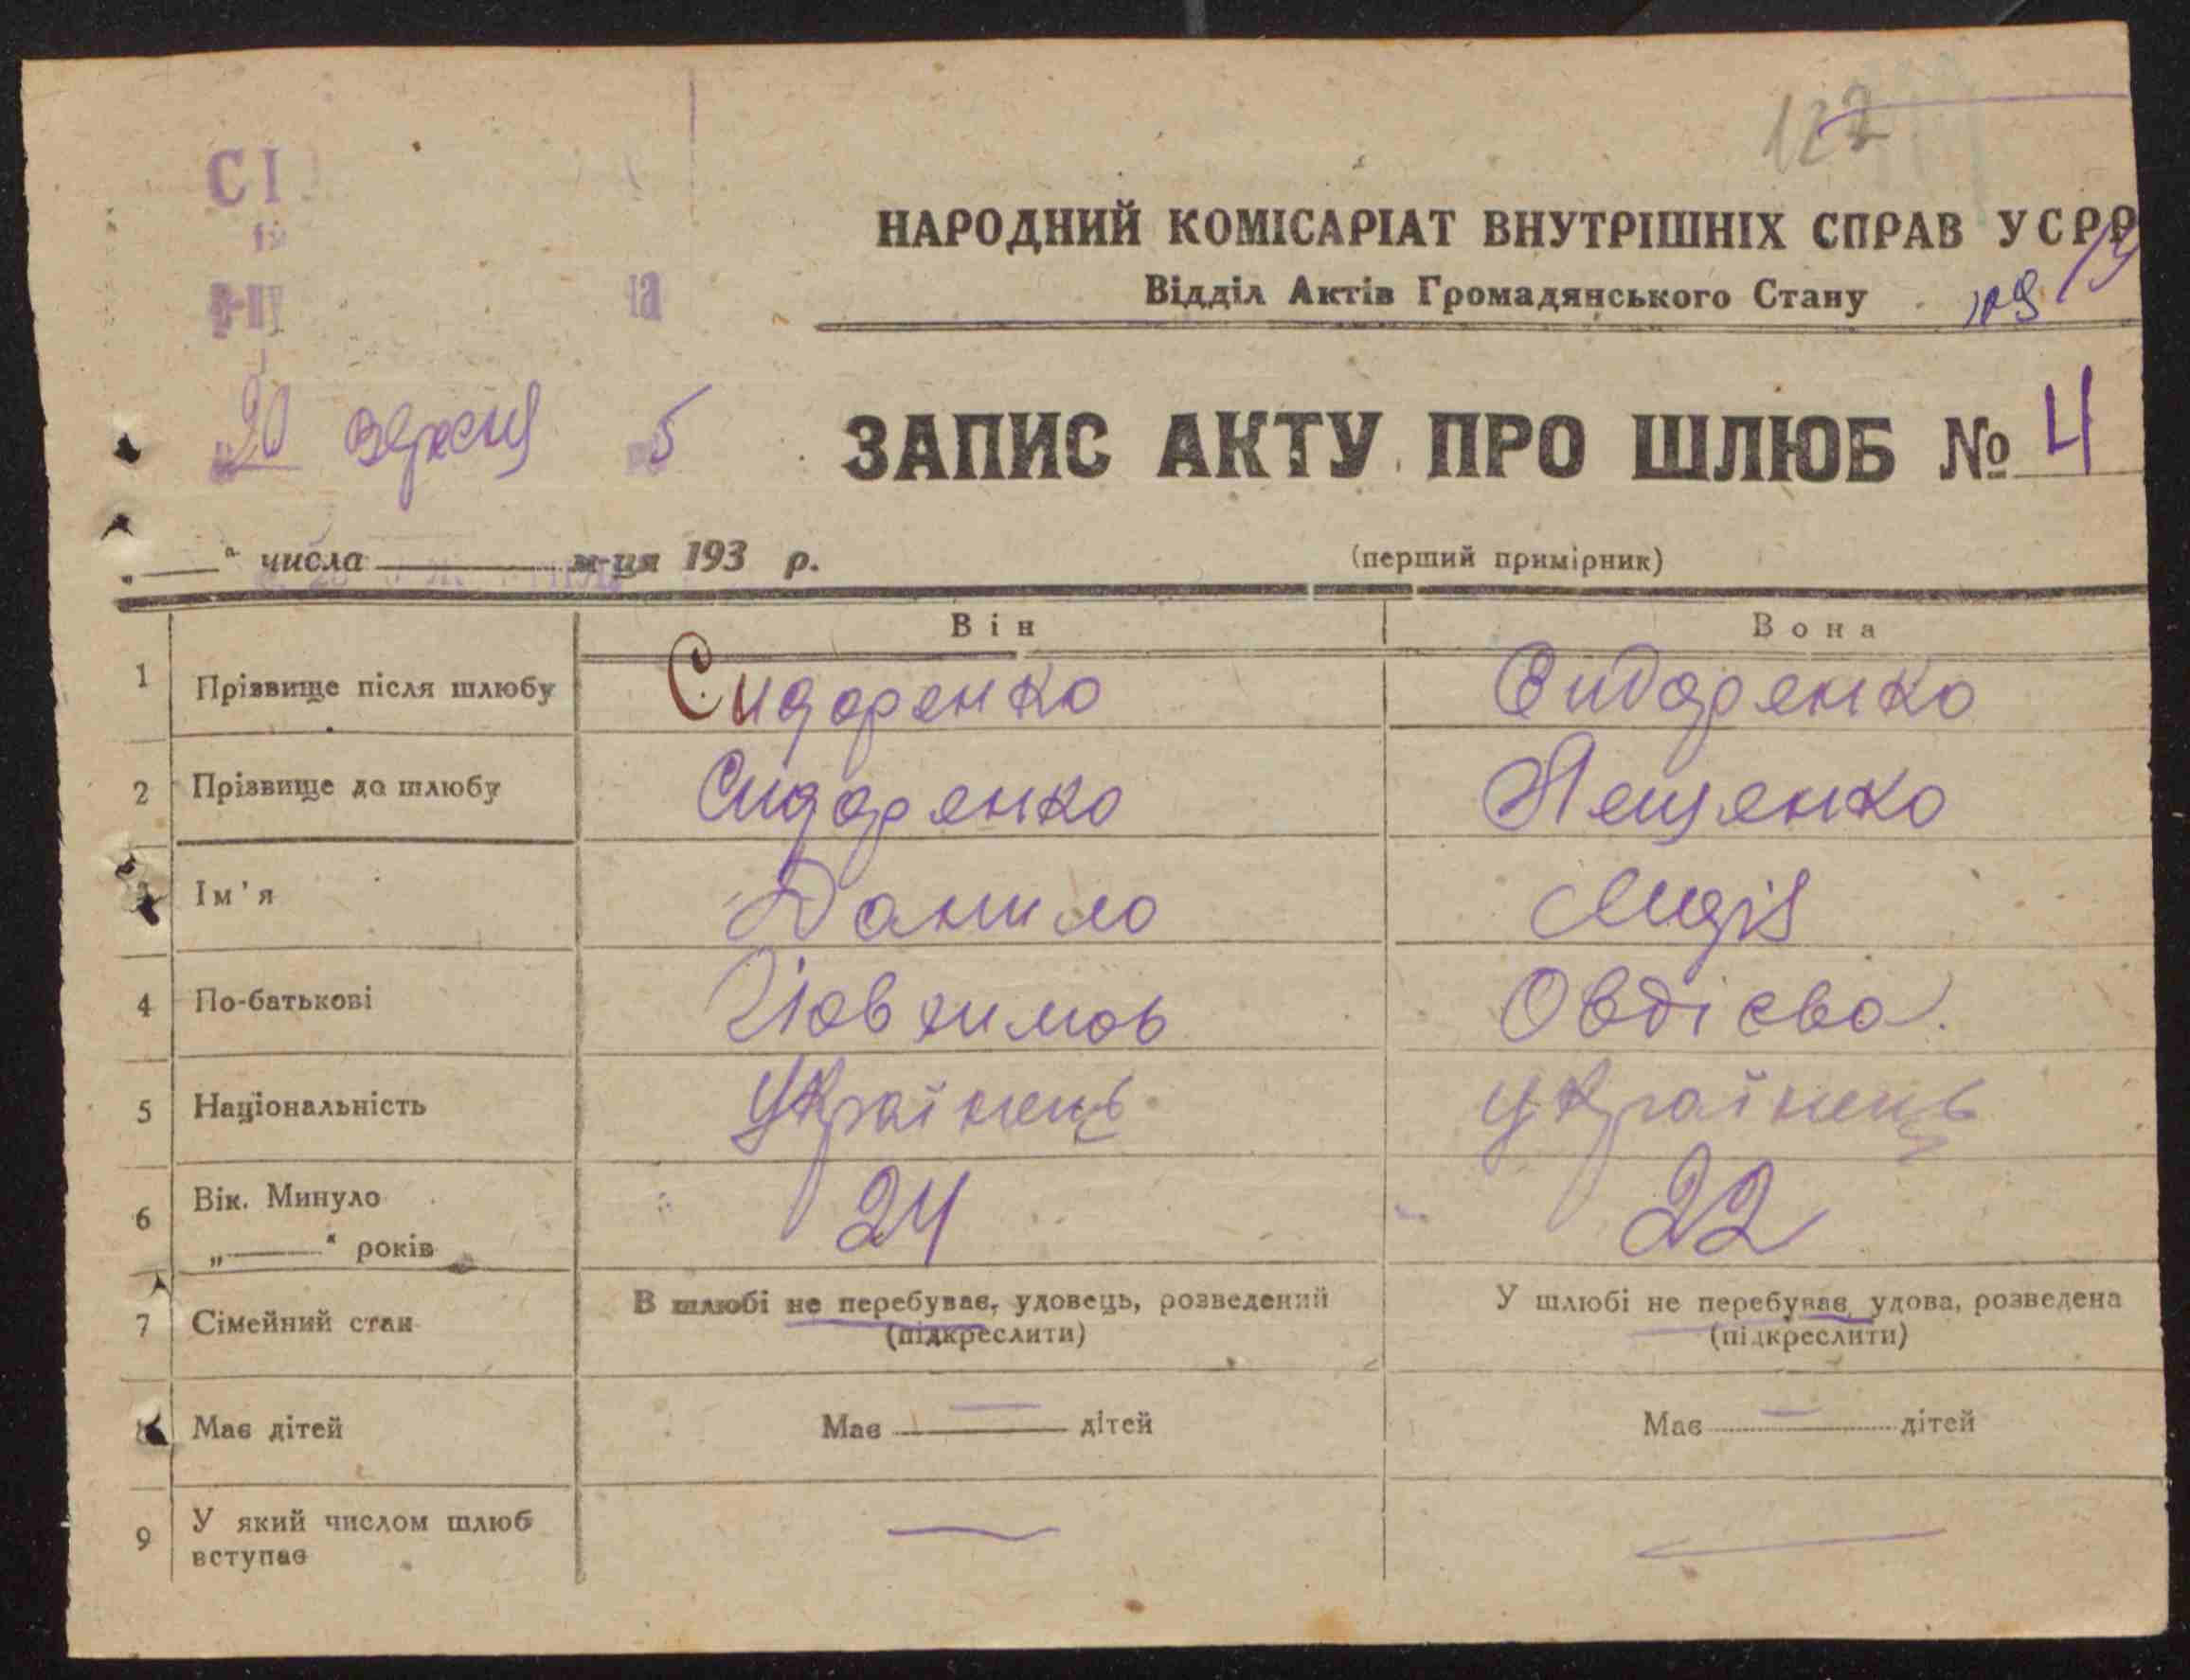 122
СІ
НАРОДНИЙ КОМІСАРІАТ ВНУТРІШНІХ СПРАВ УСРР
Відділ Актів Громадянського Стану
20 вересня 5
ЗАПИС АКТУ ПРО ШЛЮБ № 4
„ “ числа м-ця 193 р. (перший примірник)
Він Вона
1 Прізвище після шлюбу Сидоренко Сидоренко
2 Прізвище до шлюбу Сидоренко Ященко
3 Ім'я Данило Лидія
4 По-батькові Овдієва.
5 Національність Українець Українець
6 Вік. Минуло „ “ років 24 22
7 Сімейний стан В шлюбі не перебуває, удовець, розведений (підкреслити) У шлюбі не перебуває, удова, розведена (підкреслити)
8 Має дітей Має — дітей Має — дітей
9 У який числом шлюб вступає — —